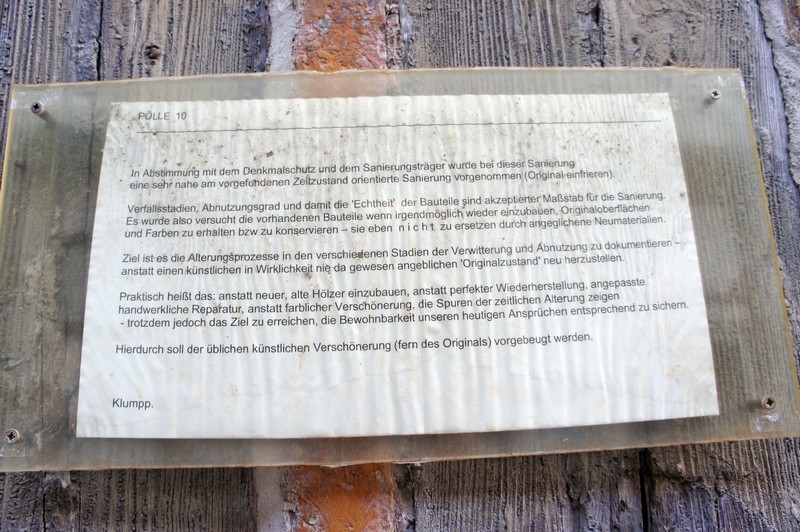 PÖLLE 10
In Abstimmung mit dem Denkmalschutz und dem Sanierungsträger wurde bei dieser Sanierung
eine sehr nahe am vorgefundenen Zeitzustand orientierte Sanierung vorgenommen (Original einfrieren).
Verfallsstadien, Abnutzungsgrad und damit die 'Echtheit' der Bauteile sind akzeptierter Maßstab für die Sanierung.
Es wurde also versucht die vorhandenen Bauteile wenn irgendmöglich wieder einzubauen, Originaloberflächen
und Farben zu erhalten bzw zu konservieren – sie eben n i c h t zu ersetzen durch angeglichene Neumaterialien.
Ziel ist es die Alterungsprozesse in den verschiedenen Stadien der Verwitterung und Abnutzung zu dokumentieren –
anstatt einen künstlichen in Wirklichkeit nie da gewesen angeblichen 'Originalzustand' neu herzustellen.
Praktisch heißt das: anstatt neuer, alte Hölzer einzubauen, anstatt perfekter Wiederherstellung, angepasste
handwerkliche Reparatur, anstatt farblicher Verschönerung, die Spuren der zeitlichen Alterung zeigen
- trotzdem jedoch das Ziel zu erreichen, die Bewohnbarkeit unseren heutigen Ansprüchen entsprechend zu sichern.
Hierdurch soll der üblichen künstlichen Verschönerung (fern des Originals) vorgebeugt werden.
Klumpp.